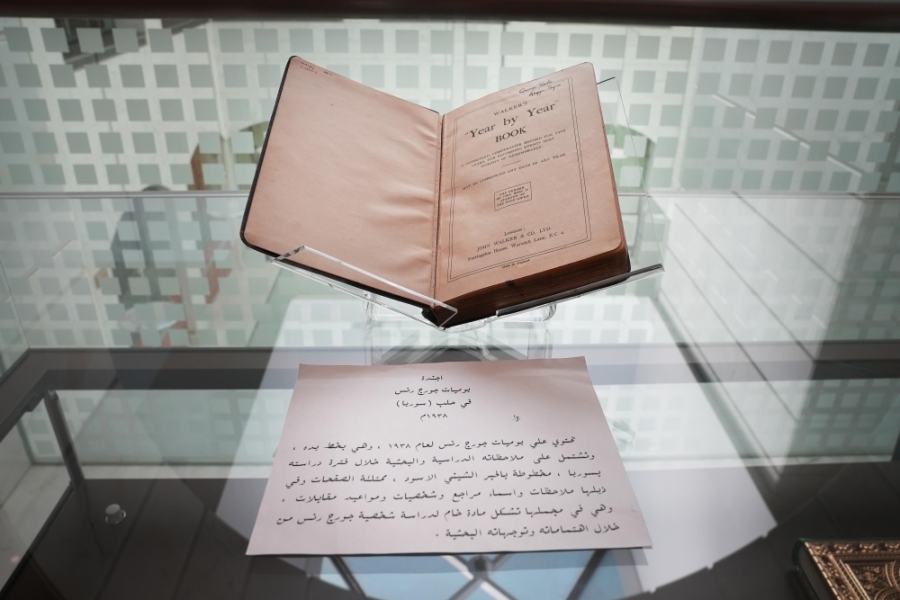 WALKER'S
"Year by Year"
BOOK
London:
JOHN WALKER & CO. LTD.
Farringdon House, Warwick Lane, E.C. 4
اجندة
يوميات جورج رنس
في حلب (سوريا)
١٩٣٨م
تحتوي على يوميات جورج رنس لعام ١٩٣٨ ، وهي بخط يده ،
وتشتمل على ملاحظاته الدراسية والبحثية خلال فترة دراسته
بسوريا ، مخطوطة بالحبر الشيني الاسود ، ممتلئة الصفحات وفي
ذيلها ملاحظات واسماء مراجع وشخصيات ومواعيد مقابلات ،
وهي في مجملها تشكل مادة خام لدراسة شخصية جورج رنس من
خلال اهتماماته وتوجهاته البحثية .